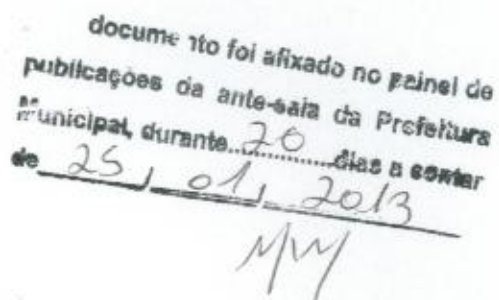 documento foi afixado no painel de
publicações da ante-sala da Prefeitura
Municipal, durante 20 dias a contar
de 25 / 01 / 2013